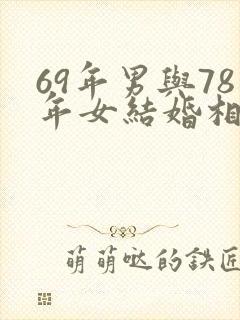 69年男與78
年女結婚相
萌萌哒的鉄匠